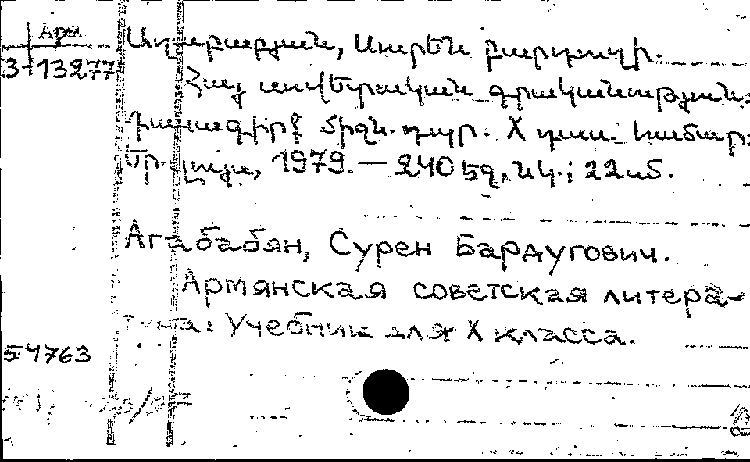 Арм
3-13277
Աղաբաբյան, Սուրեն բարդուղի.
Հայ սովետական գրականություն:
Դասագիրք միջն. դպր. X դաս. համար:
Եր. Լույս, 1979. — 240 էջ, նկ.; 22 սմ.
Агабабян, Сурен Бардугович.
Армянская советская литера-
тура: Учебник для X класса.
54763